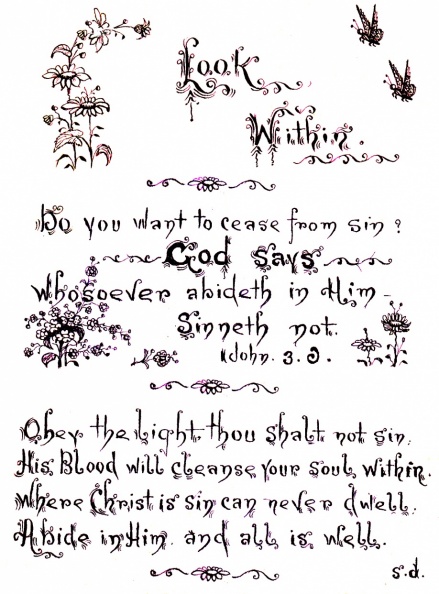 Look
Within.
Do you want to cease from sin?
God says
Whosoever abideth in Him -
Sinneth not.
1 John. 3. 6.
Obey the Light, thou shalt not sin.
His Blood will cleanse your soul within.
Where Christ is sin can never dwell.
Abide in Him and all is well.
s.d.